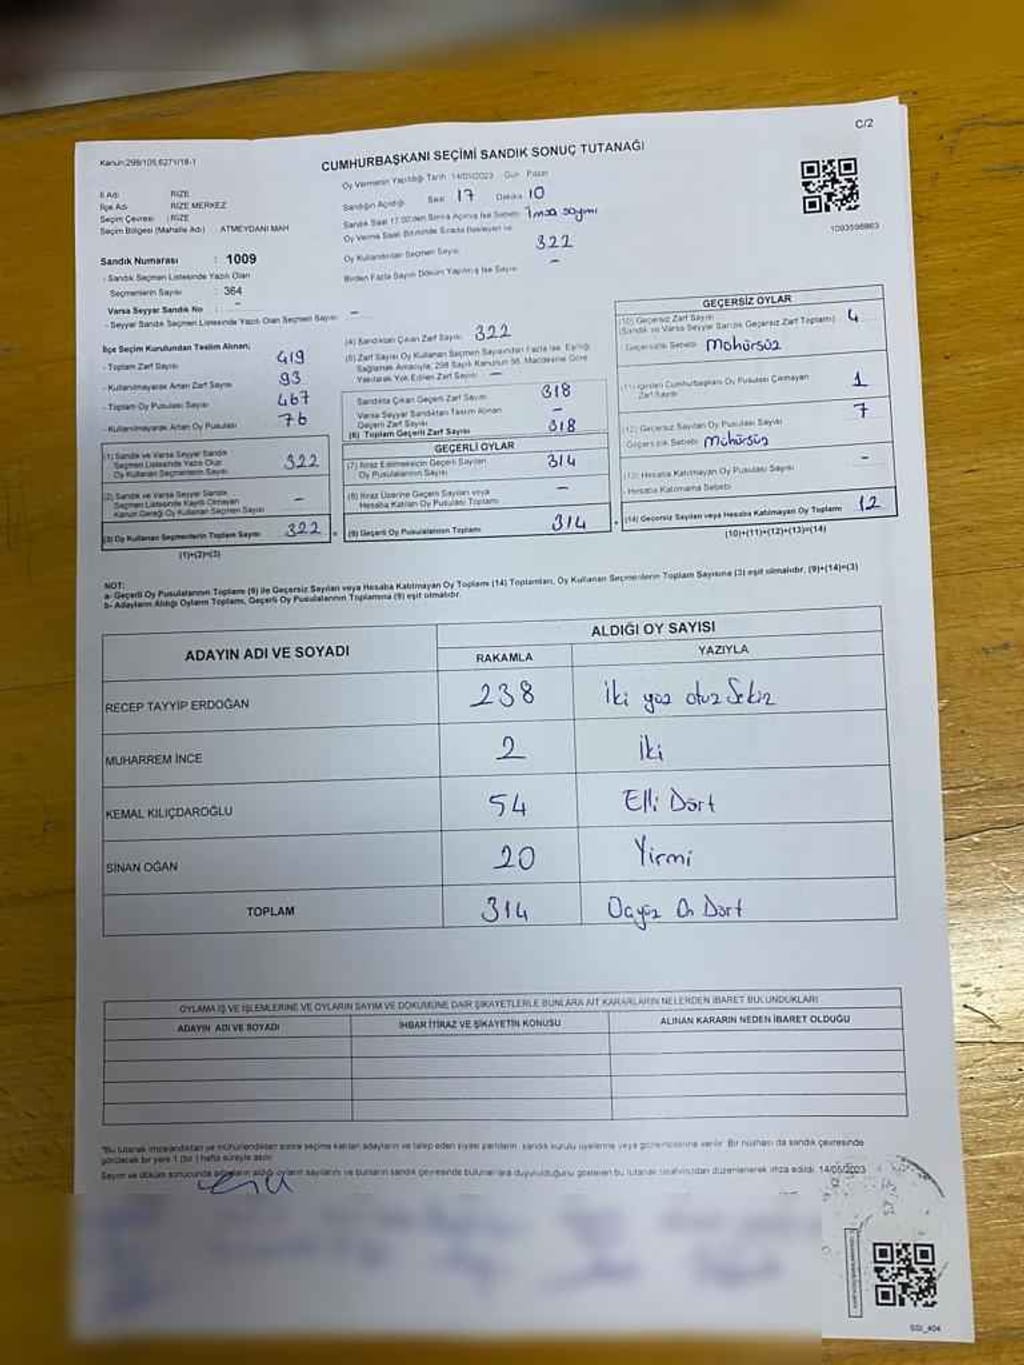 C/2
Kanun:298/105,6271/18-1
CUMHURBAŞKANI SEÇİMİ SANDIK SONUÇ TUTANAĞI
İl Adı : RİZE
İlçe Adı : RİZE MERKEZ
Seçim Çevresi : RİZE
Seçim Bölgesi (Mahalle Adı) : ATMEYDANI MAH
Sandık Numarası : 1009
- Sandık Seçmen Listesinde Yazılı Olan
Seçmenlerin Sayısı : 364
Varsa Seyyar Sandık No : -
- Seyyar Sandık Seçmen Listesinde Yazılı Olan Seçmen Sayısı : -
Oy Vermenin Yapıldığı Tarih 14/05/2023 Gün Pazar
Sandığın Açıldığı Saat 17 Dakika 10
Sandık Saat 17:00'den Sonra Açılmış İse Sebebi: İmza sayımı
Oy Verme Saati Bitiminde Sırada Bekleyen
Oy Kullandılan Seçmen Sayısı 322
Birden Fazla Sayım Döküm Yapılmış İse Sayısı -
1093596863
İlçe Seçim Kurulundan Teslim Alınan;
- Toplam Zarf Sayısı 419
- Kullanılmayarak Artan Zarf Sayısı 93
- Toplam Oy Pusulası Sayısı 467
- Kullanılmayarak Artan Oy Pusulası 76
(1) Sandık ve Varsa Seyyar Sandık
Seçmen Listesinde Yazılı Olup
Oy Kullanan Seçmenlerin Sayısı 322
(2) Sandık ve Varsa Seyyar Sandık
Seçmen Listesinde Kayıtlı Olmayan
Kanun Gereği Oy Kullanan Seçmen Sayısı -
(3) Oy Kullanan Seçmenlerin Toplam Sayısı 322
(1)+(2)=(3)
(4) Sandıktan Çıkan Zarf Sayısı 322
(5) Zarf Sayısı Oy Kullanan Seçmen Sayısından Fazla İse, Eşitliği
Sağlamak Amacıyla, 298 Sayılı Kanunun 98. Maddesine Göre
Yakılarak Yok Edilen Zarf Sayısı -
Sandıkta Çıkan Geçerli Zarf Sayısı 318
Varsa Seyyar Sandıktan Teslim Alınan
Geçerli Zarf Sayısı -
(6) Toplam Geçerli Zarf Sayısı 318
GEÇERLİ OYLAR
(7) İtiraz Edilmeksizin Geçerli Sayılan
Oy Pusulalarının Sayısı 314
(8) İtiraz Üzerine Geçerli Sayılan veya
Hesaba Katılan Oy Pusulası Toplamı -
(9) Geçerli Oy Pusulalarının Toplamı 314
GEÇERSİZ OYLAR
(10) Geçersiz Zarf Sayısı 4
(Sandık ve Varsa Seyyar Sandık Geçersiz Zarf Toplamı)
Geçersizlik Sebebi: Mühürsüz
(11) İçinden Cumhurbaşkanı Oy Pusulası Çıkmayan
Zarf Sayısı 1
(12) Geçersiz Sayılan Oy Pusulası Sayısı 7
Geçersizlik Sebebi: Mühürsüz
(13) Hesaba Katılmayan Oy Pusulası Sayısı -
- Hesaba Katılmama Sebebi
(14) Geçersiz Sayılan veya Hesaba Katılmayan Oy Toplamı 12
(10)+(11)+(12)+(13)=(14)
NOT:
a- Geçerli Oy Pusulalarının Toplamı (9) ile Geçersiz Sayılan veya Hesaba Katılmayan Oy Toplamı (14) Toplamları, Oy Kullanan Seçmenlerin Toplam Sayısına (3) eşit olmalıdır. (9)+(14)=(3)
b- Adayların Aldığı Oyların Toplamı, Geçerli Oy Pusulalarının Toplamına (9) eşit olmalıdır.
ADAYIN ADI VE SOYADI
ALDIĞI OY SAYISI
RAKAMLA YAZIYLA
RECEP TAYYİP ERDOĞAN 238 İki yüz otuz Sekiz
MUHARREM İNCE 2 İki
KEMAL KILIÇDAROĞLU 54 Elli Dört
SİNAN OĞAN 20 Yirmi
TOPLAM 314 Üçyüz On Dört
OYLAMA İŞ VE İŞLEMLERİNE VE OYLARIN SAYIM VE DÖKÜMÜNE DAİR ŞİKAYETLERLE BUNLARA AİT KARARLARIN NELERDEN İBARET BULUNDUKLARI
ADAYIN ADI VE SOYADI İHBAR İTİRAZ VE ŞİKAYETİN KONUSU ALINAN KARARIN NEDEN İBARET OLDUĞU
*Bu tutanak imzalandıktan ve mühürlendikten sonra seçime katılan adayların ve talep eden siyasi partilerin sandık kurulu üyelerine veya gözlemcilerine verilir. Bir nüshası da sandık çevresinde
görülecek bir yere 1 (bir) hafta süreyle asılır.
Sayım ve döküm sonucunda adayların aldığı oyların sayılarını ve bunların sandık çevresinde bulunanlara duyurulduğunu gösteren bu tutanak tarafımızdan düzenlenerek imza edildi. 14/05/2023
SSI_404